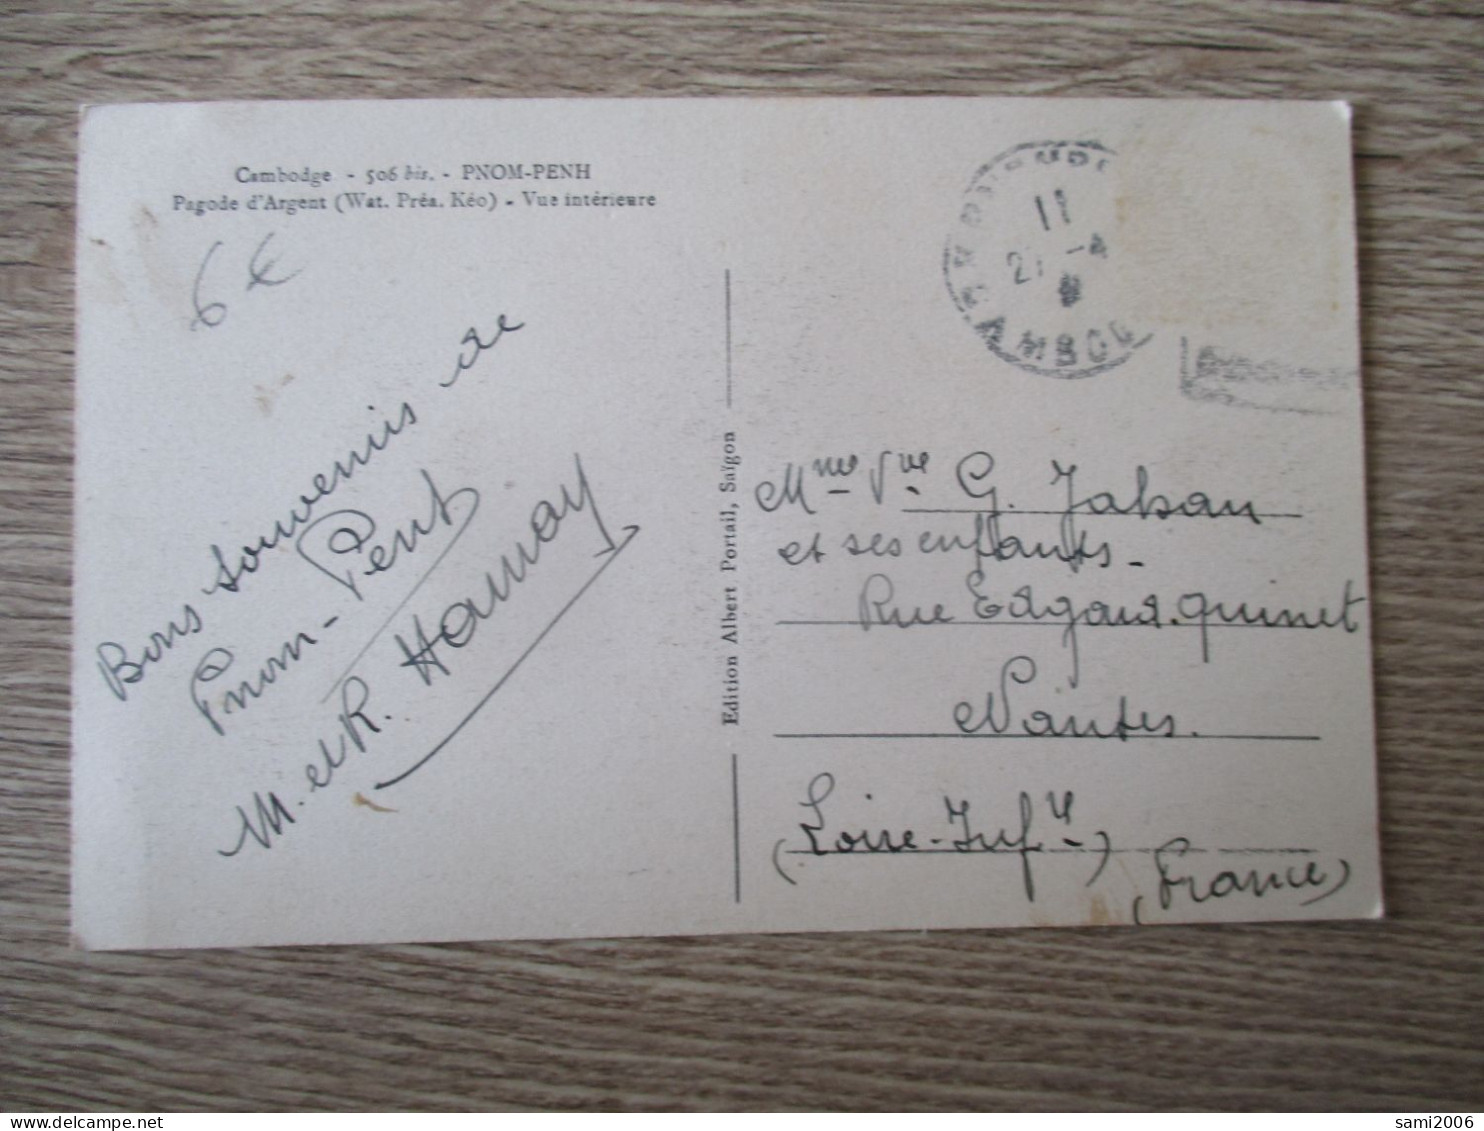 Cambodge - 506 bis. - PNOM-PENH
Pagode d'Argent (Wat. Préa. Kéo) - Vue intérieure
6€
Bons souvenirs de
Pnom-Penh
M. et R. Hamoy
Edition Albert Portail, Saïgon
11
CAMBOD
Mme Vve G. Jahan
et ses enfants-
Rue Edgard. Quinet
Nantes.
(Loire-Infre)
(France)
sami2006